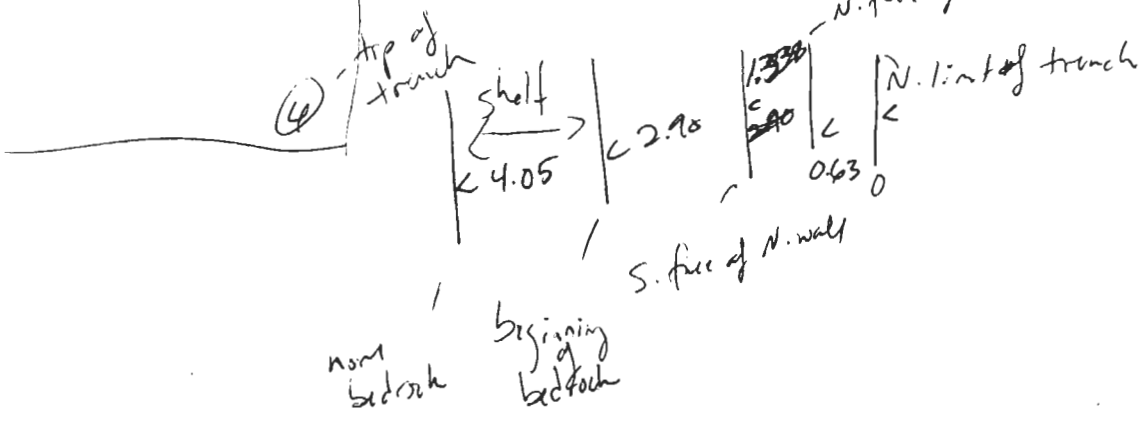 ④
top of
trench
shelf
< 4.05
< 2.90
1.338
<
2.90
N.
<
0.63
N. limit of trench
<
0
S. face of N. wall
beginning
of
bedrock
bedrock